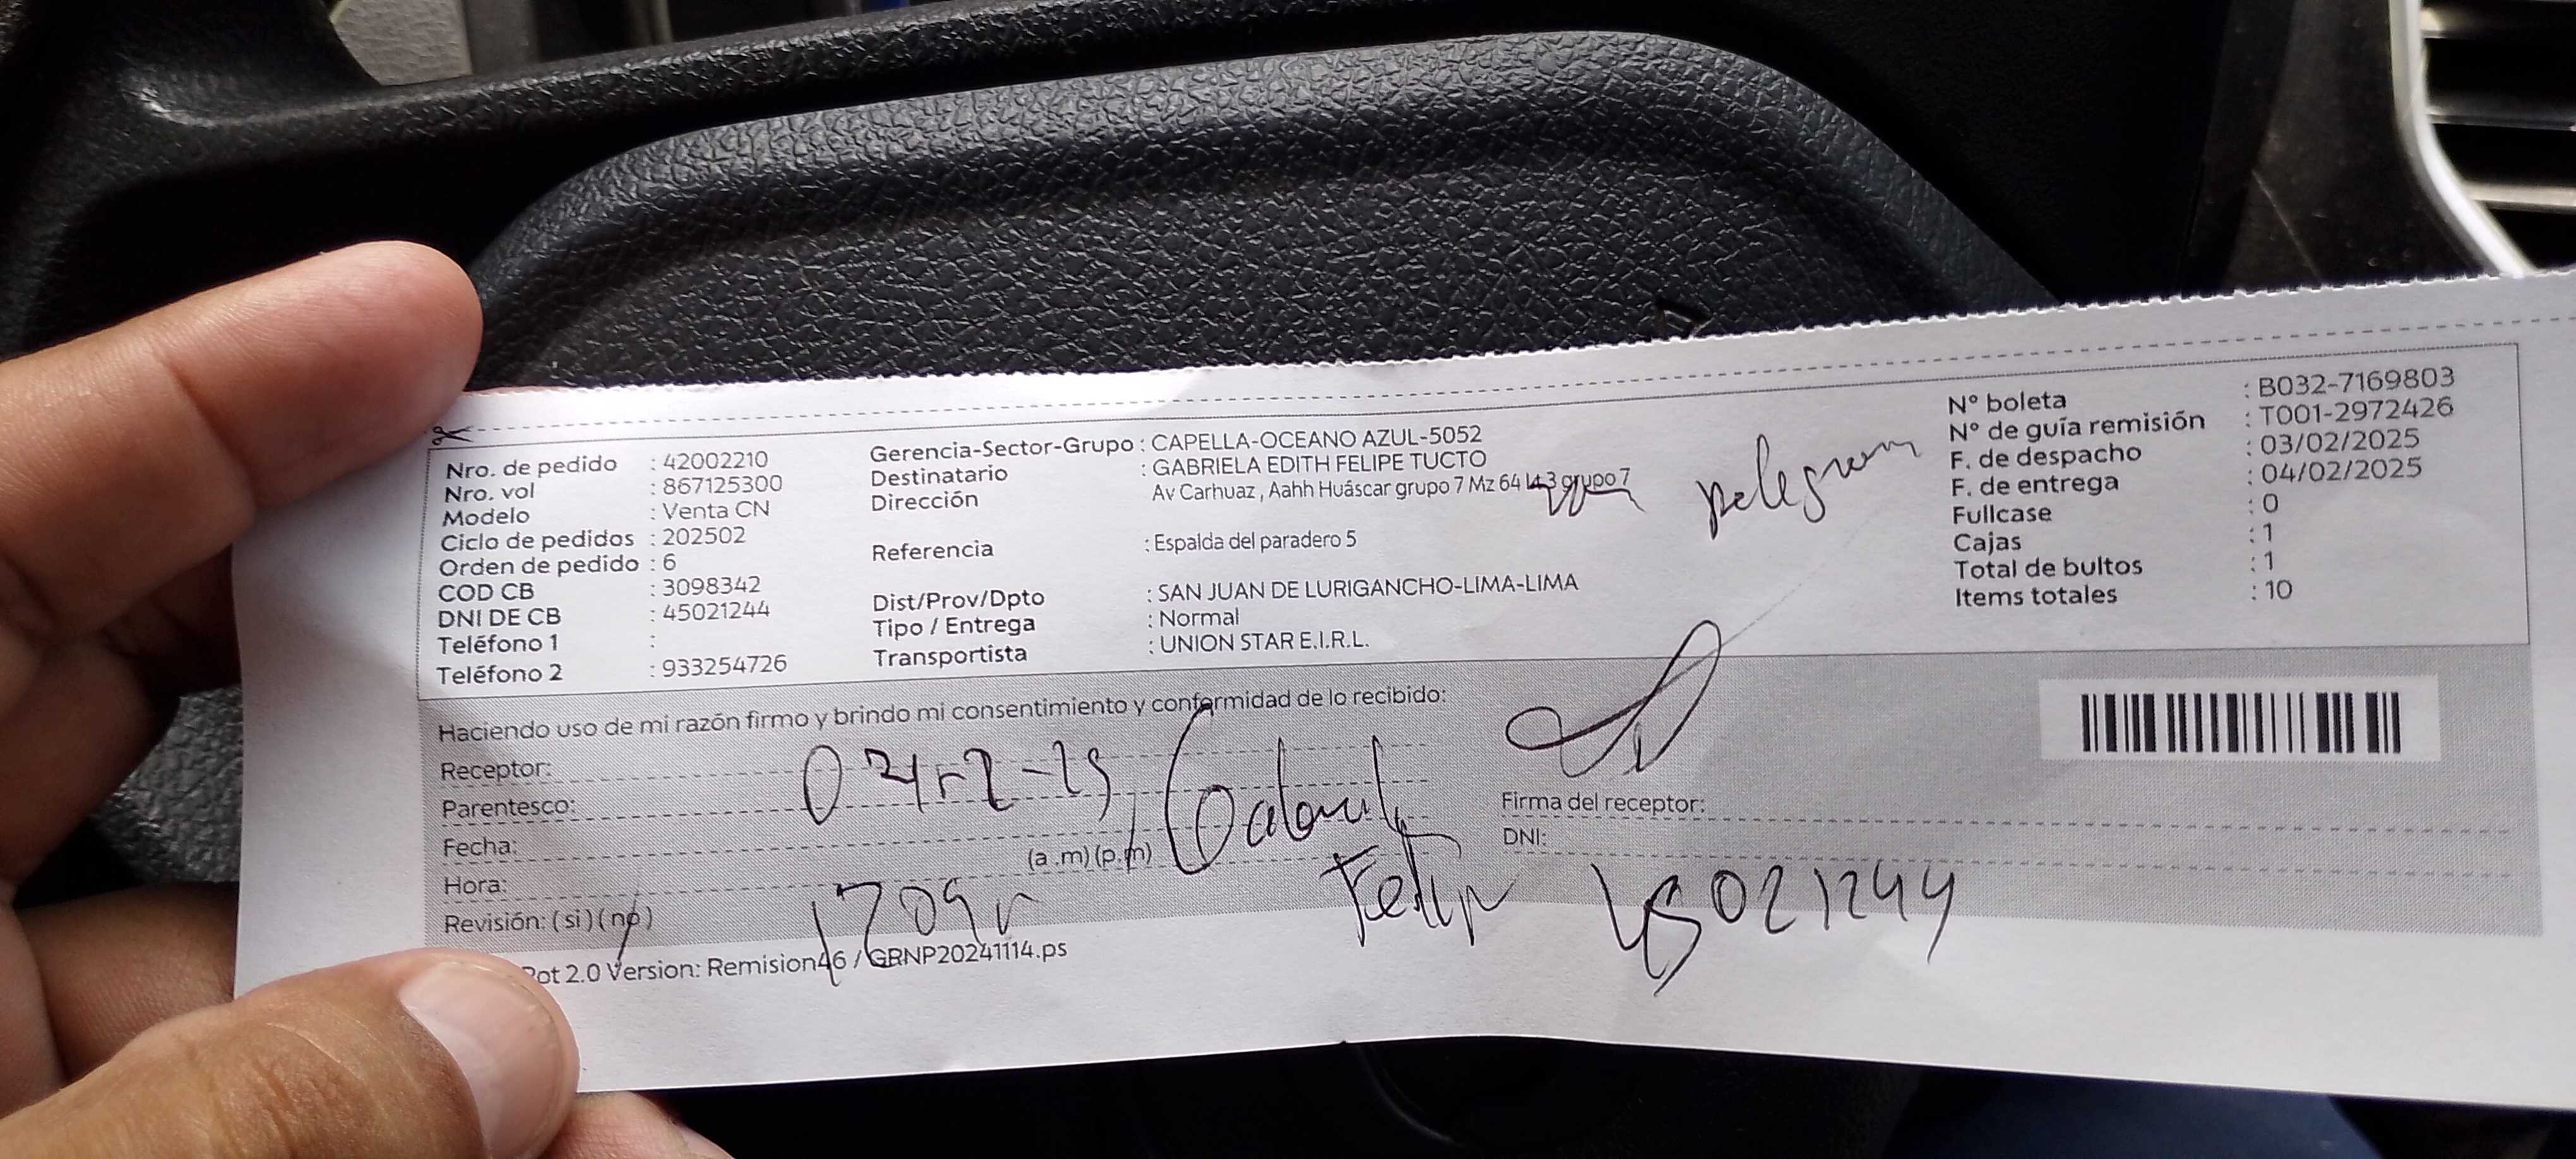 Nro. de pedido : 42002210
Nro. vol : 867125300
Modelo : Venta CN
Ciclo de pedidos : 202502
Orden de pedido : 6
COD CB : 3098342
DNI DE CB : 45021244
Teléfono 1 :
Teléfono 2 : 933254726
Gerencia-Sector-Grupo : CAPELLA-OCEANO AZUL-5052
Destinatario : GABRIELA EDITH FELIPE TUCTO
Dirección Av Carhuaz , Aahh Huáscar grupo 7 Mz 64 Lt 3 grupo 7
Referencia : Espalda del paradero 5
Dist/Prov/Dpto : SAN JUAN DE LURIGANCHO-LIMA-LIMA
Tipo / Entrega : Normal
Transportista : UNION STAR E.I.R.L.
N° boleta : B032-7169803
N° de guía remisión : T001-2972426
F. de despacho : 03/02/2025
F. de entrega : 04/02/2025
Fullcase : 0
Cajas : 1
Total de bultos : 1
Items totales : 10
Haciendo uso de mi razón firmo y brindo mi consentimiento y conformidad de lo recibido:
Receptor:
Parentesco:
Fecha:
(a .m) (p.m)
Hora:
Revisión: ( si ) ( no )
Firma del receptor:
DNI:
45021244
ot 2.0 Version: Remision46 / GRNP20241114.ps